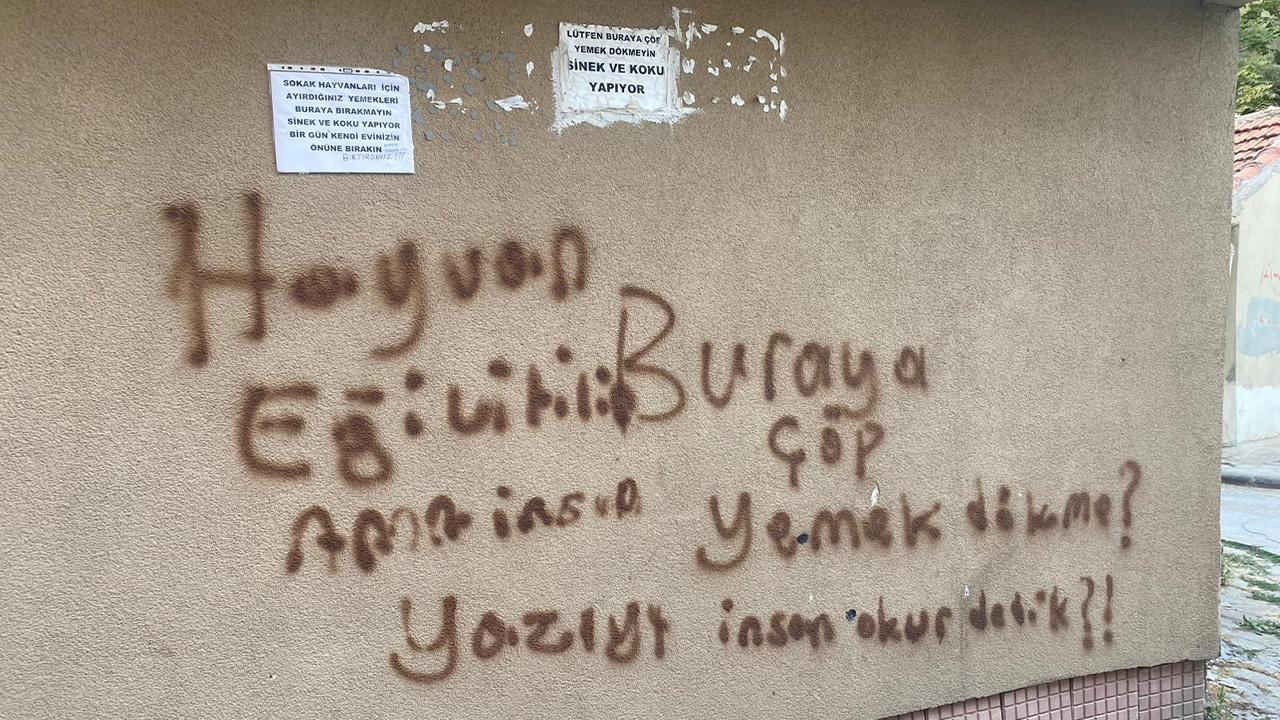 SOKAK HAYVANLARI İÇİN
AYIRDIĞINIZ YEMEKLERİ
BURAYA BIRAKMAYIN
SİNEK VE KOKU YAPIYOR
BİR GÜN KENDİ EVİNİZİN
ÖNÜNE BIRAKIN
BIKTIRDINIZ???
LÜTFEN BURAYA ÇÖP
YEMEK DÖKMEYİN
SİNEK VE KOKU
YAPIYOR
Hayvan
Eğitilir
AMA insan
Buraya
Çöp
Yemek dökme?
Yazıyı insan okur dedik?!